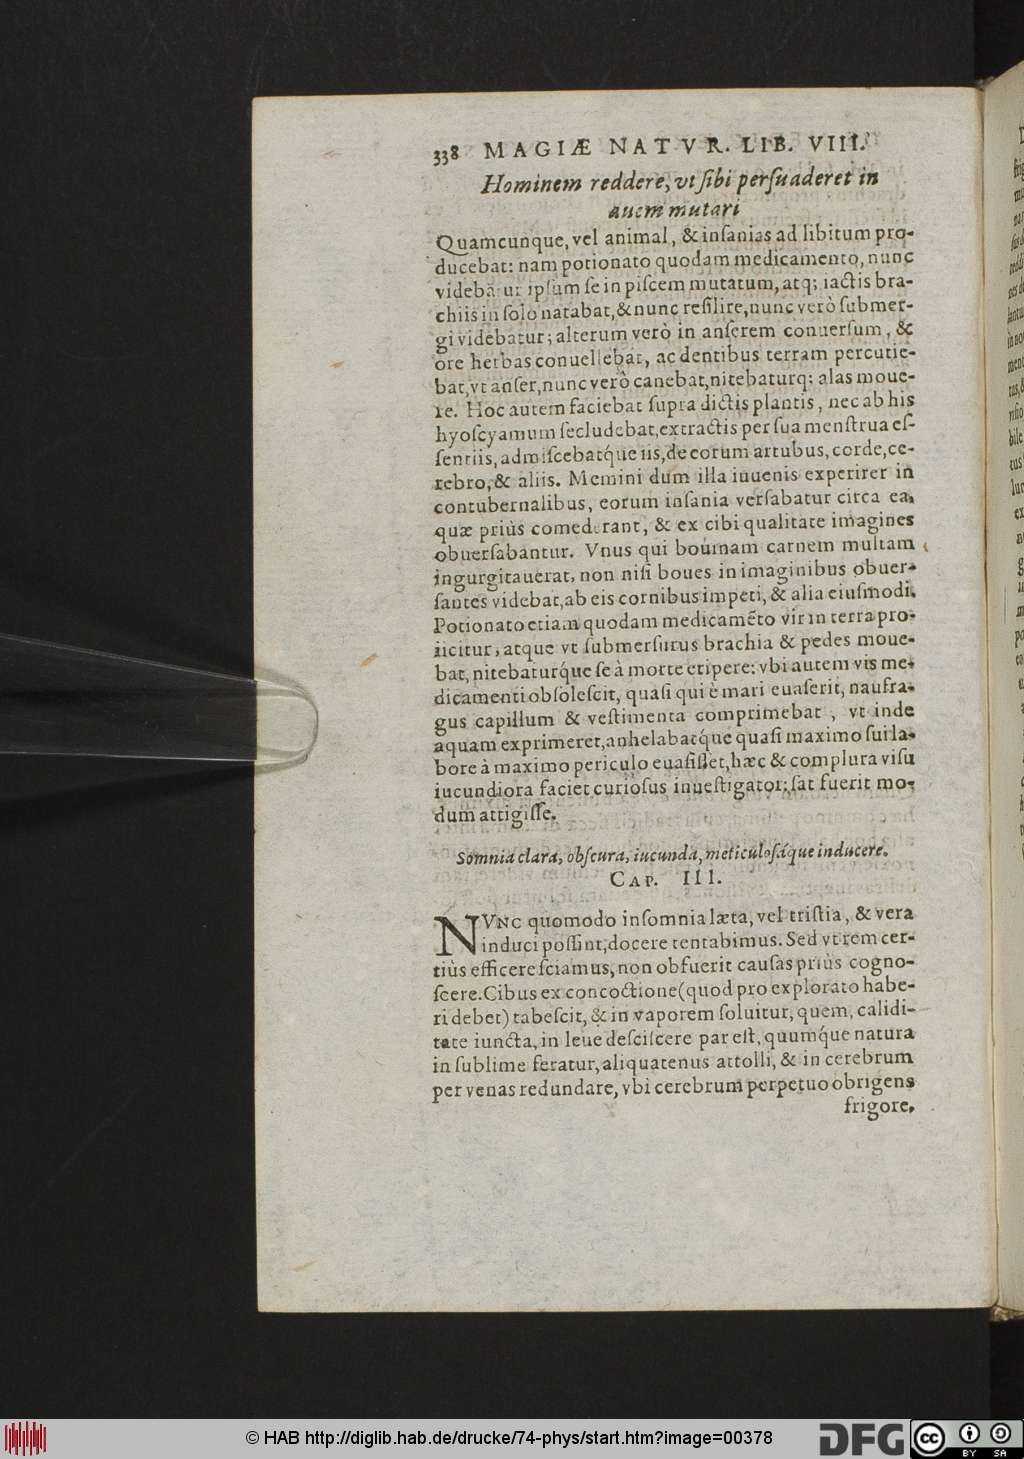 338 MAGIÆ NATVR. LIB. VIII.
Hominem reddere, vt ſibi perſuaderet in
auem mutari
Quamcunque, vel animal, & inſanias ad libitum pro-
ducebat: nam potionato quodam medicamento, nunc
videbatur ipſum ſe in piſcem mutatum, atq; iactis bra-
chiis in ſolo natabat, & nunc reſilire, nunc verò ſubmer-
gi videbatur; alterum verò in anſerem conuerſum, &
ore herbas conuellebat, ac dentibus terram percutie-
bat, vt anſer, nunc verò canebat, nitebaturq; alas moue-
re. Hoc autem faciebat ſupra dictis plantis, nec ab his
hyoſcyamum ſecludebat, extractis per ſua menſtrua eſ-
ſentiis, admiſcebatq́ue iis, de eorum artubus, corde, ce-
rebro, & aliis. Memini dum illa iuuenis experirer in
contubernalibus, eorum inſania verſabatur circa ea,
quæ priùs comederant, & ex cibi qualitate imagines
obuerſabantur. Vnus qui bouinam carnem multam
ingurgitauerat, non niſi boues in imaginibus obuer-
ſantes videbat, ab eis cornibus impeti, & alia eiuſmodi.
Potionato etiam quodam medicamẽto vir in terra pro-
iicitur, atque vt ſubmerſurus brachia & pedes moue-
bat, nitebaturq́ue ſe à morte eripere: vbi autem vis me-
dicamenti obſoleſcit, quaſi qui è mari euaſerit, naufra-
gus capillum & veſtimenta comprimebat, vt inde
aquam exprimeret, anhelabatq́ue quaſi maximo ſui la-
bore à maximo periculo euaſiſſet, hæc & complura viſu
iucundiora faciet curioſus inueſtigator; ſat fuerit mo-
dum attigiſſe.
Somnia clara, obſcura, iucunda, meticuloſáque inducere.
CAP. III.
NVNC quomodo inſomnia læta, vel triſtia, & vera
induci poſſint, docere tentabimus. Sed vt rem cer-
tiùs efficere ſciamus, non obfuerit cauſas priùs cogno-
ſcere. Cibus ex concoctione (quod pro explorato habe-
ri debet) tabeſcit, & in vaporem ſoluitur, quem, calidi-
tate iuncta, in leue deſciſcere par eſt, quumq́ue natura
in ſublime feratur, aliquatenus attolli, & in cerebrum
per venas redundare, vbi cerebrum perpetuo obrigens
frigore,
© HAB http://diglib.hab.de/drucke/74-phys/start.htm?image=00378
DFG
cc BY SA